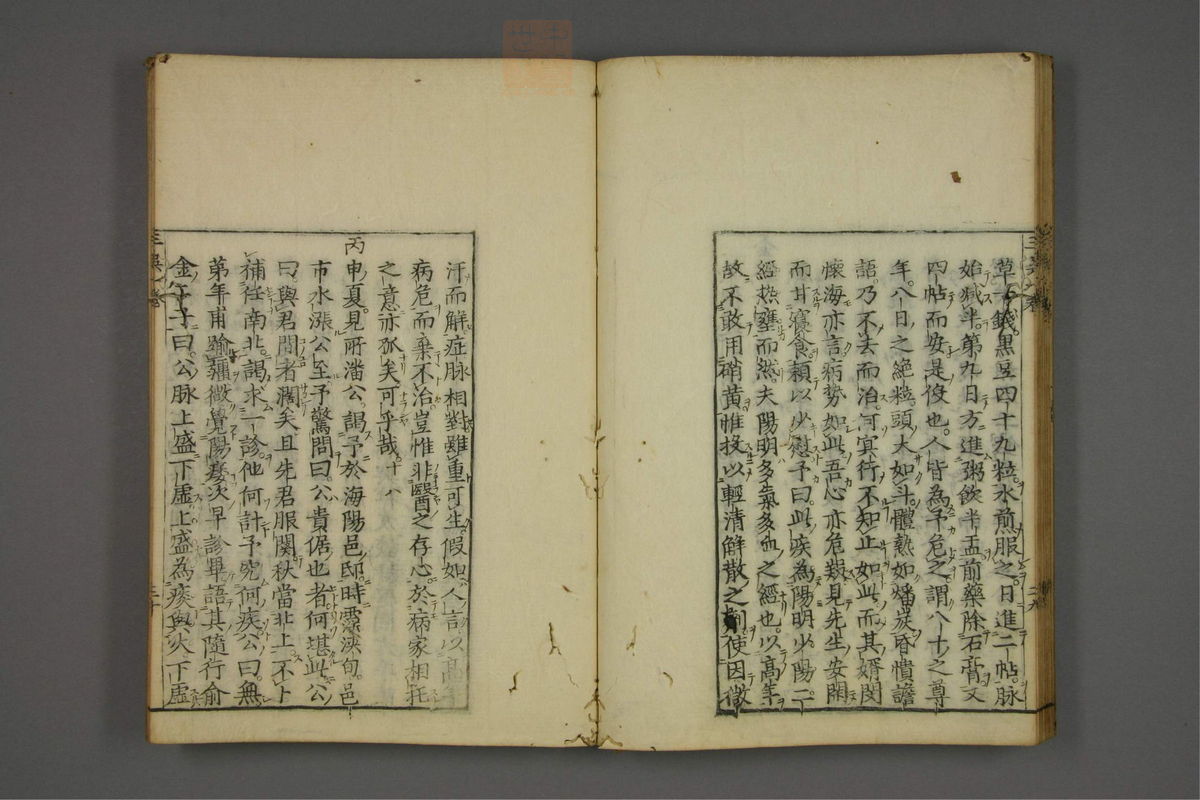 草一錢黒豆四十九粒水煎服之日進二帖脉
始減半第九日方進粥飲半盂前藥除石膏又
四帖而安是役也人皆為予危之謂八十之尊
年八日之絶粒頭大如斗體熱如燔炭昏憒譫
語乃不去而治何冥行不知止如此而其婿閔
懷海亦言病勢如此吾心亦危疑見先生安閑
而甘寢食頼以少慰予曰此疾為陽明少陽二
經熱壅而然夫陽明多氣多血之經也以高年
故不敢用硝黄惟投以輕清解散之劑使因微
汗而解症脉相對雖重可生假如人言以高年
病危而棄不治豈惟非醫之存心於病家相托
之意亦孤矣可乎哉十八
丙申夏見所潘公謁予於海陽邑邸時霪浹旬邑
市水漲公至予驚問曰公貴倨也者何堪此公
曰與君間者濶矣且先君服闋秋當北上不卜
補任南北謁求一診他何計予究何疾公曰無
第年甫踰疆微覺陽痿次早診畢語其隨行俞
金二子曰公脉上盛下虚上盛為痰與火下虚